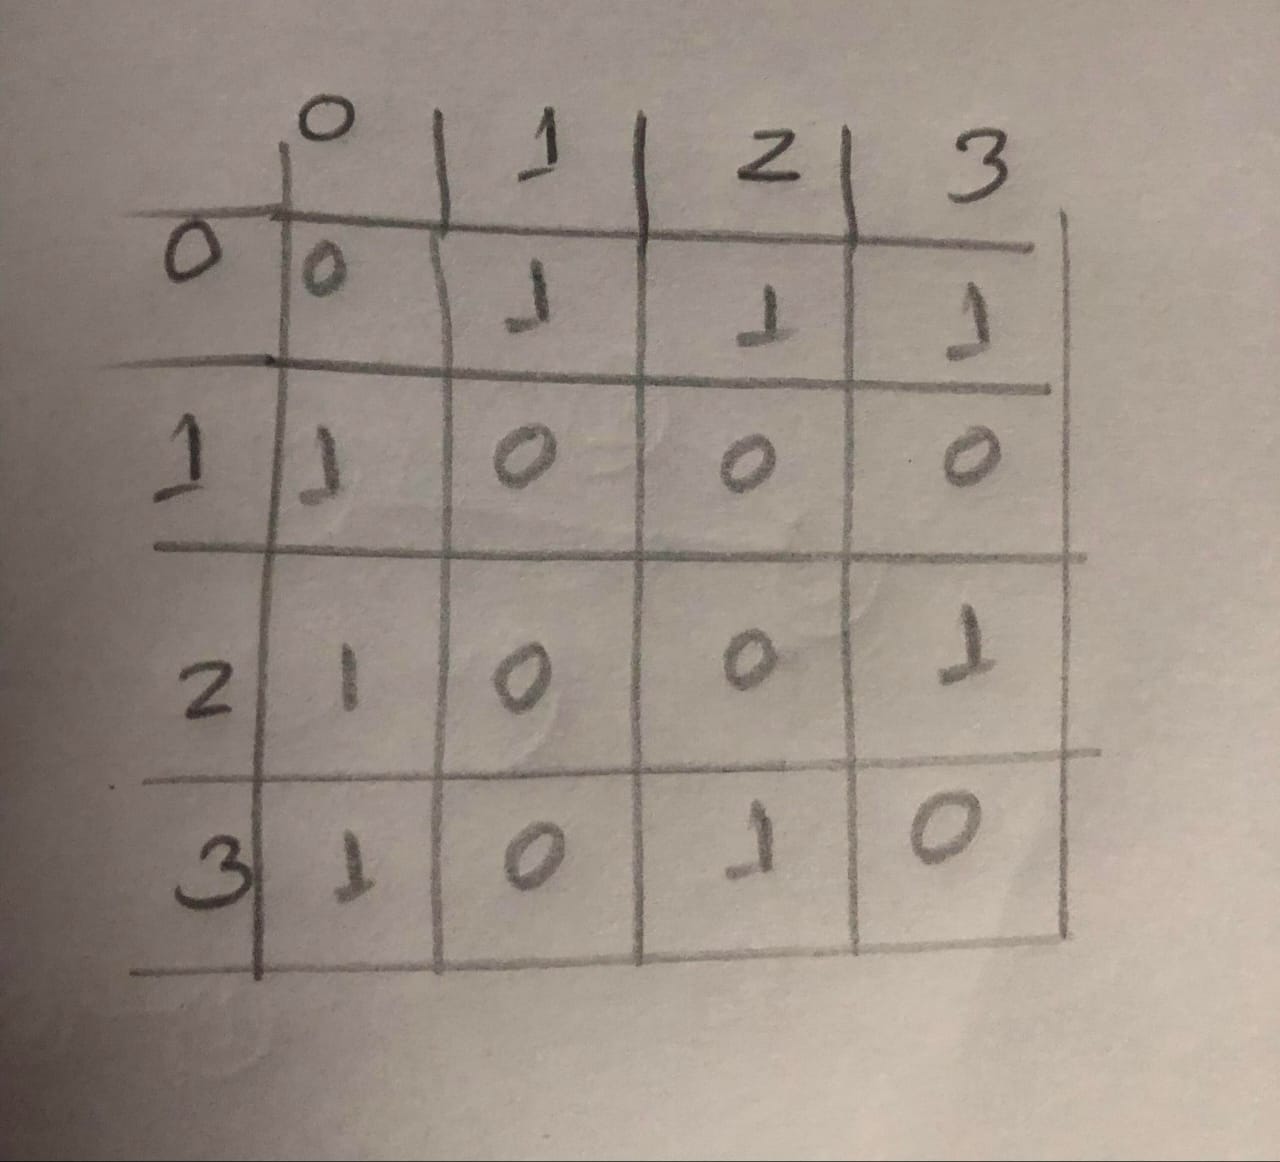 0 1 2 3
0 0 1 1 1
1 1 0 0 0
2 1 0 0 1
3 1 0 1 0